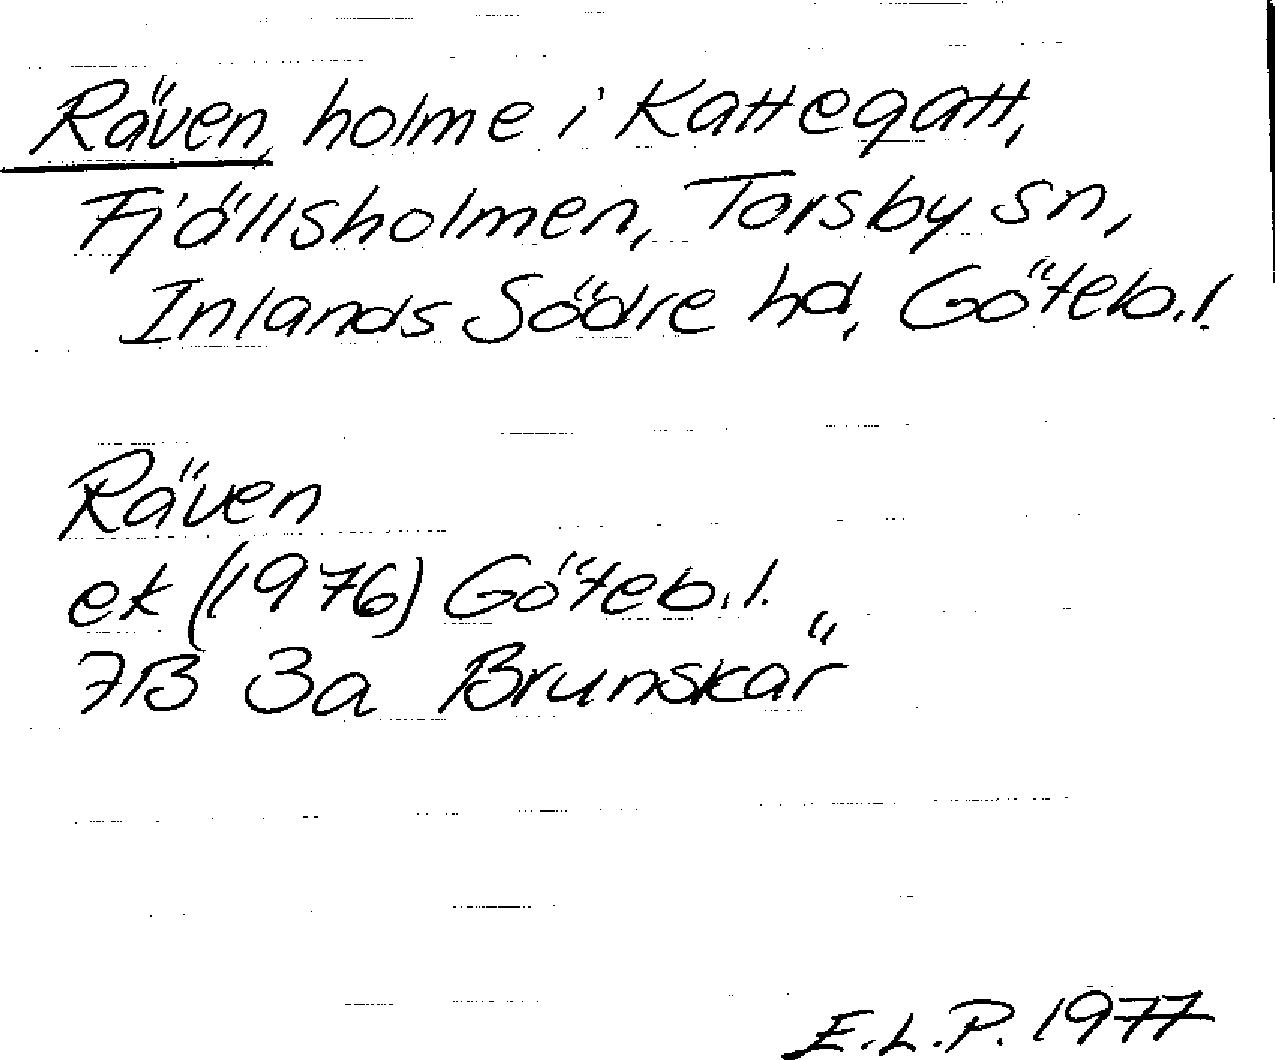 Räven, holme i Kattegatt,
Fjöllsholmen, Torsby sn,
Inlands Södre hd, Göteb.l.
Räven
ek (1976) Göteb.l.
7B 3a Brunskär
E.L.P. 1977